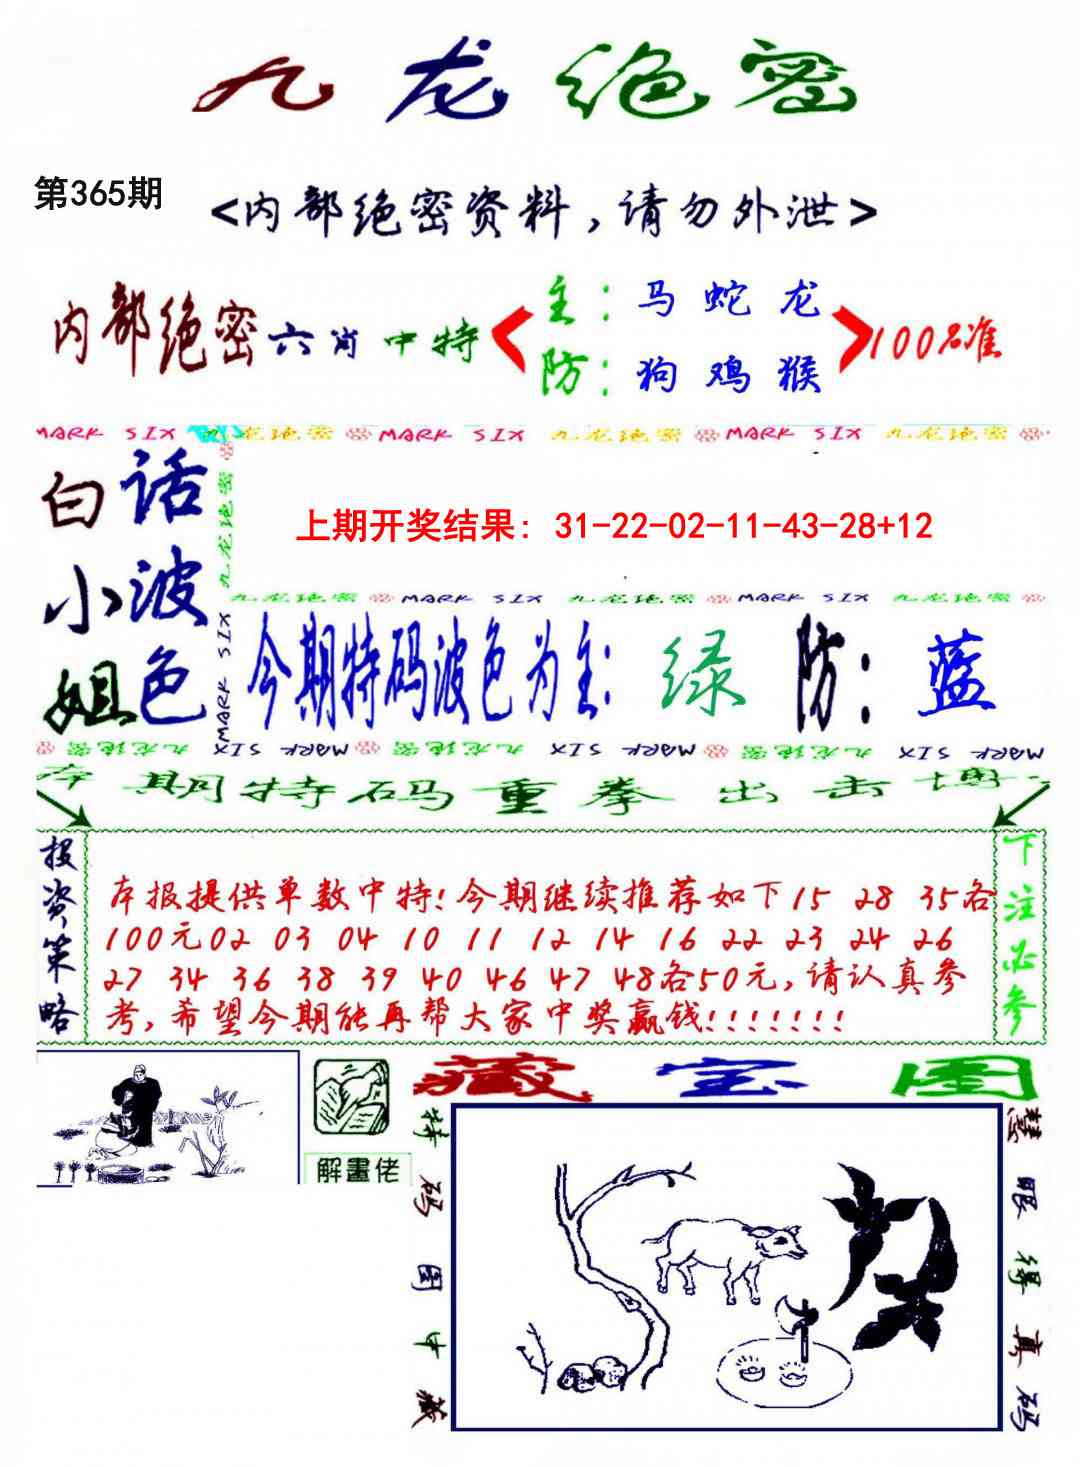 九龙绝密
第365期
<内部绝密资料,请勿外泄>
内部绝密六肖中特
主:马蛇龙
防:狗鸡猴
100%准
MARK SIX 九龙绝密 MARK SIX 九龙绝密 MARK SIX 九龙绝密
白话小波姐色
九龙绝密
MARK SIX
上期开奖结果: 31-22-02-11-43-28+12
九龙绝密 MARK SIX 九龙绝密 MARK SIX 九龙绝密
今期特码波色为主:绿 防:蓝
九龙绝密 MARK SIX 九龙绝密 MARK SIX 九龙绝密 MARK SIX
本期特码重拳出击博
投资策略
本报提供单数中特!今期继续推荐如下15 28 35各
100元02 03 04 10 11 12 14 16 22 23 24 26
27 34 36 38 39 40 46 47 48各50元,请认真参
考,希望今期能再帮大家中奖赢钱!!!!!!!
下注必参
解畫佬
藏宝图
特码图中藏
慧眼得真码